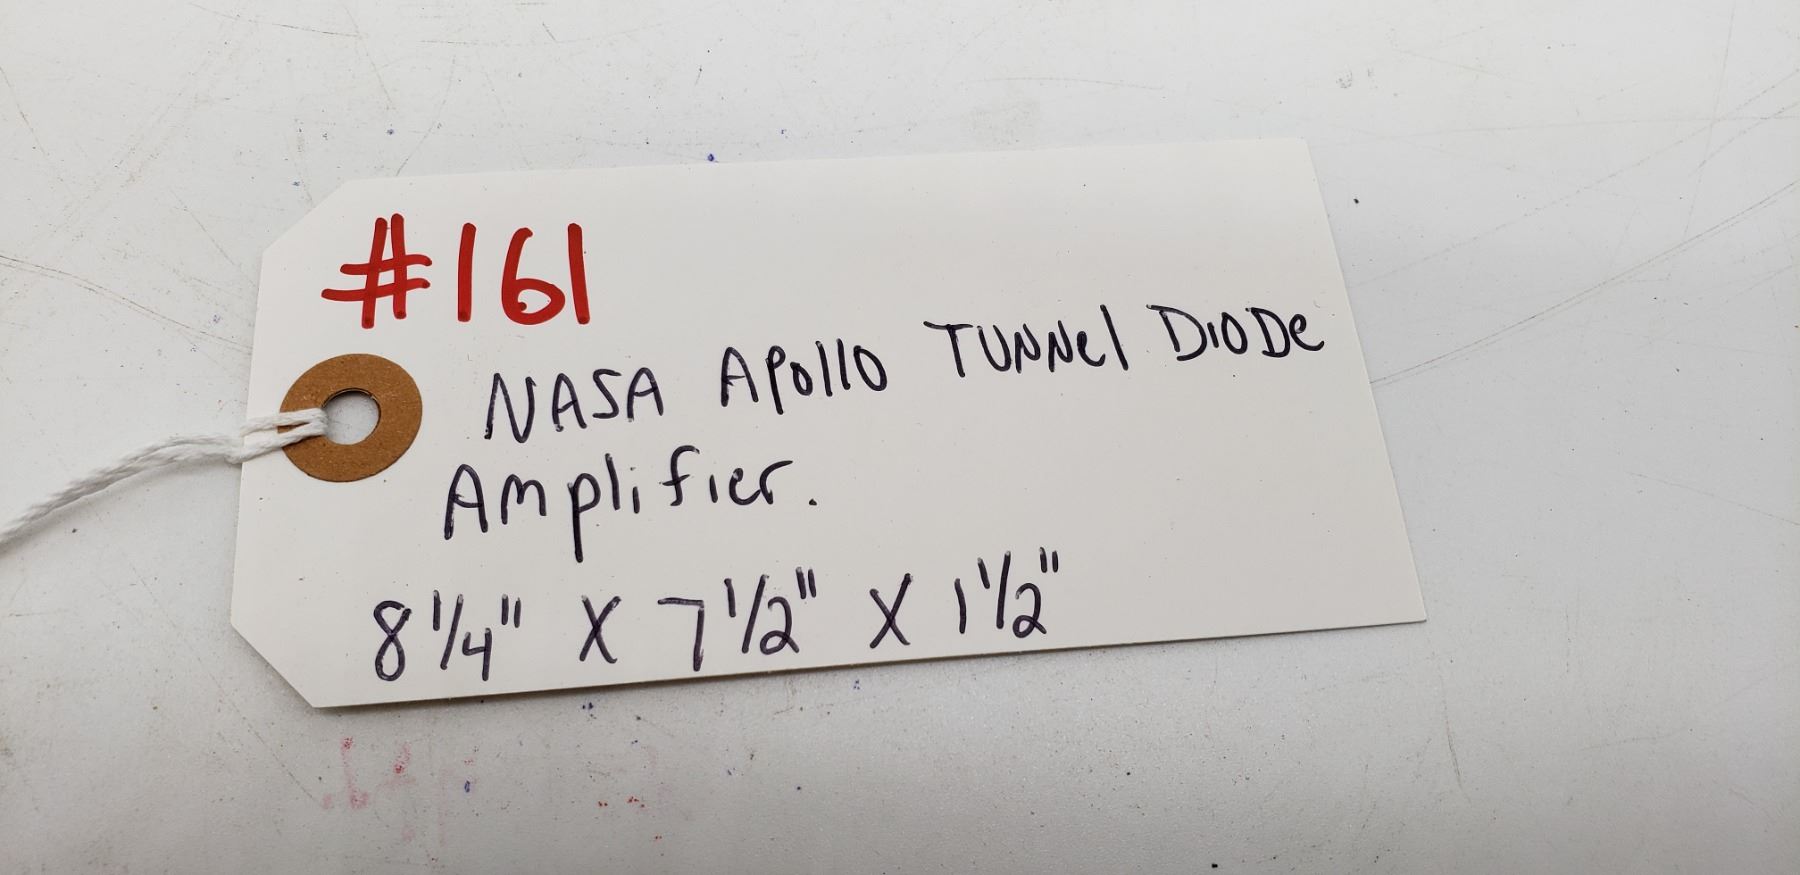 #161
NASA Apollo TUNNel DIODe
Amplifier.
8 1/4" X 7 1/2" X 1 1/2"